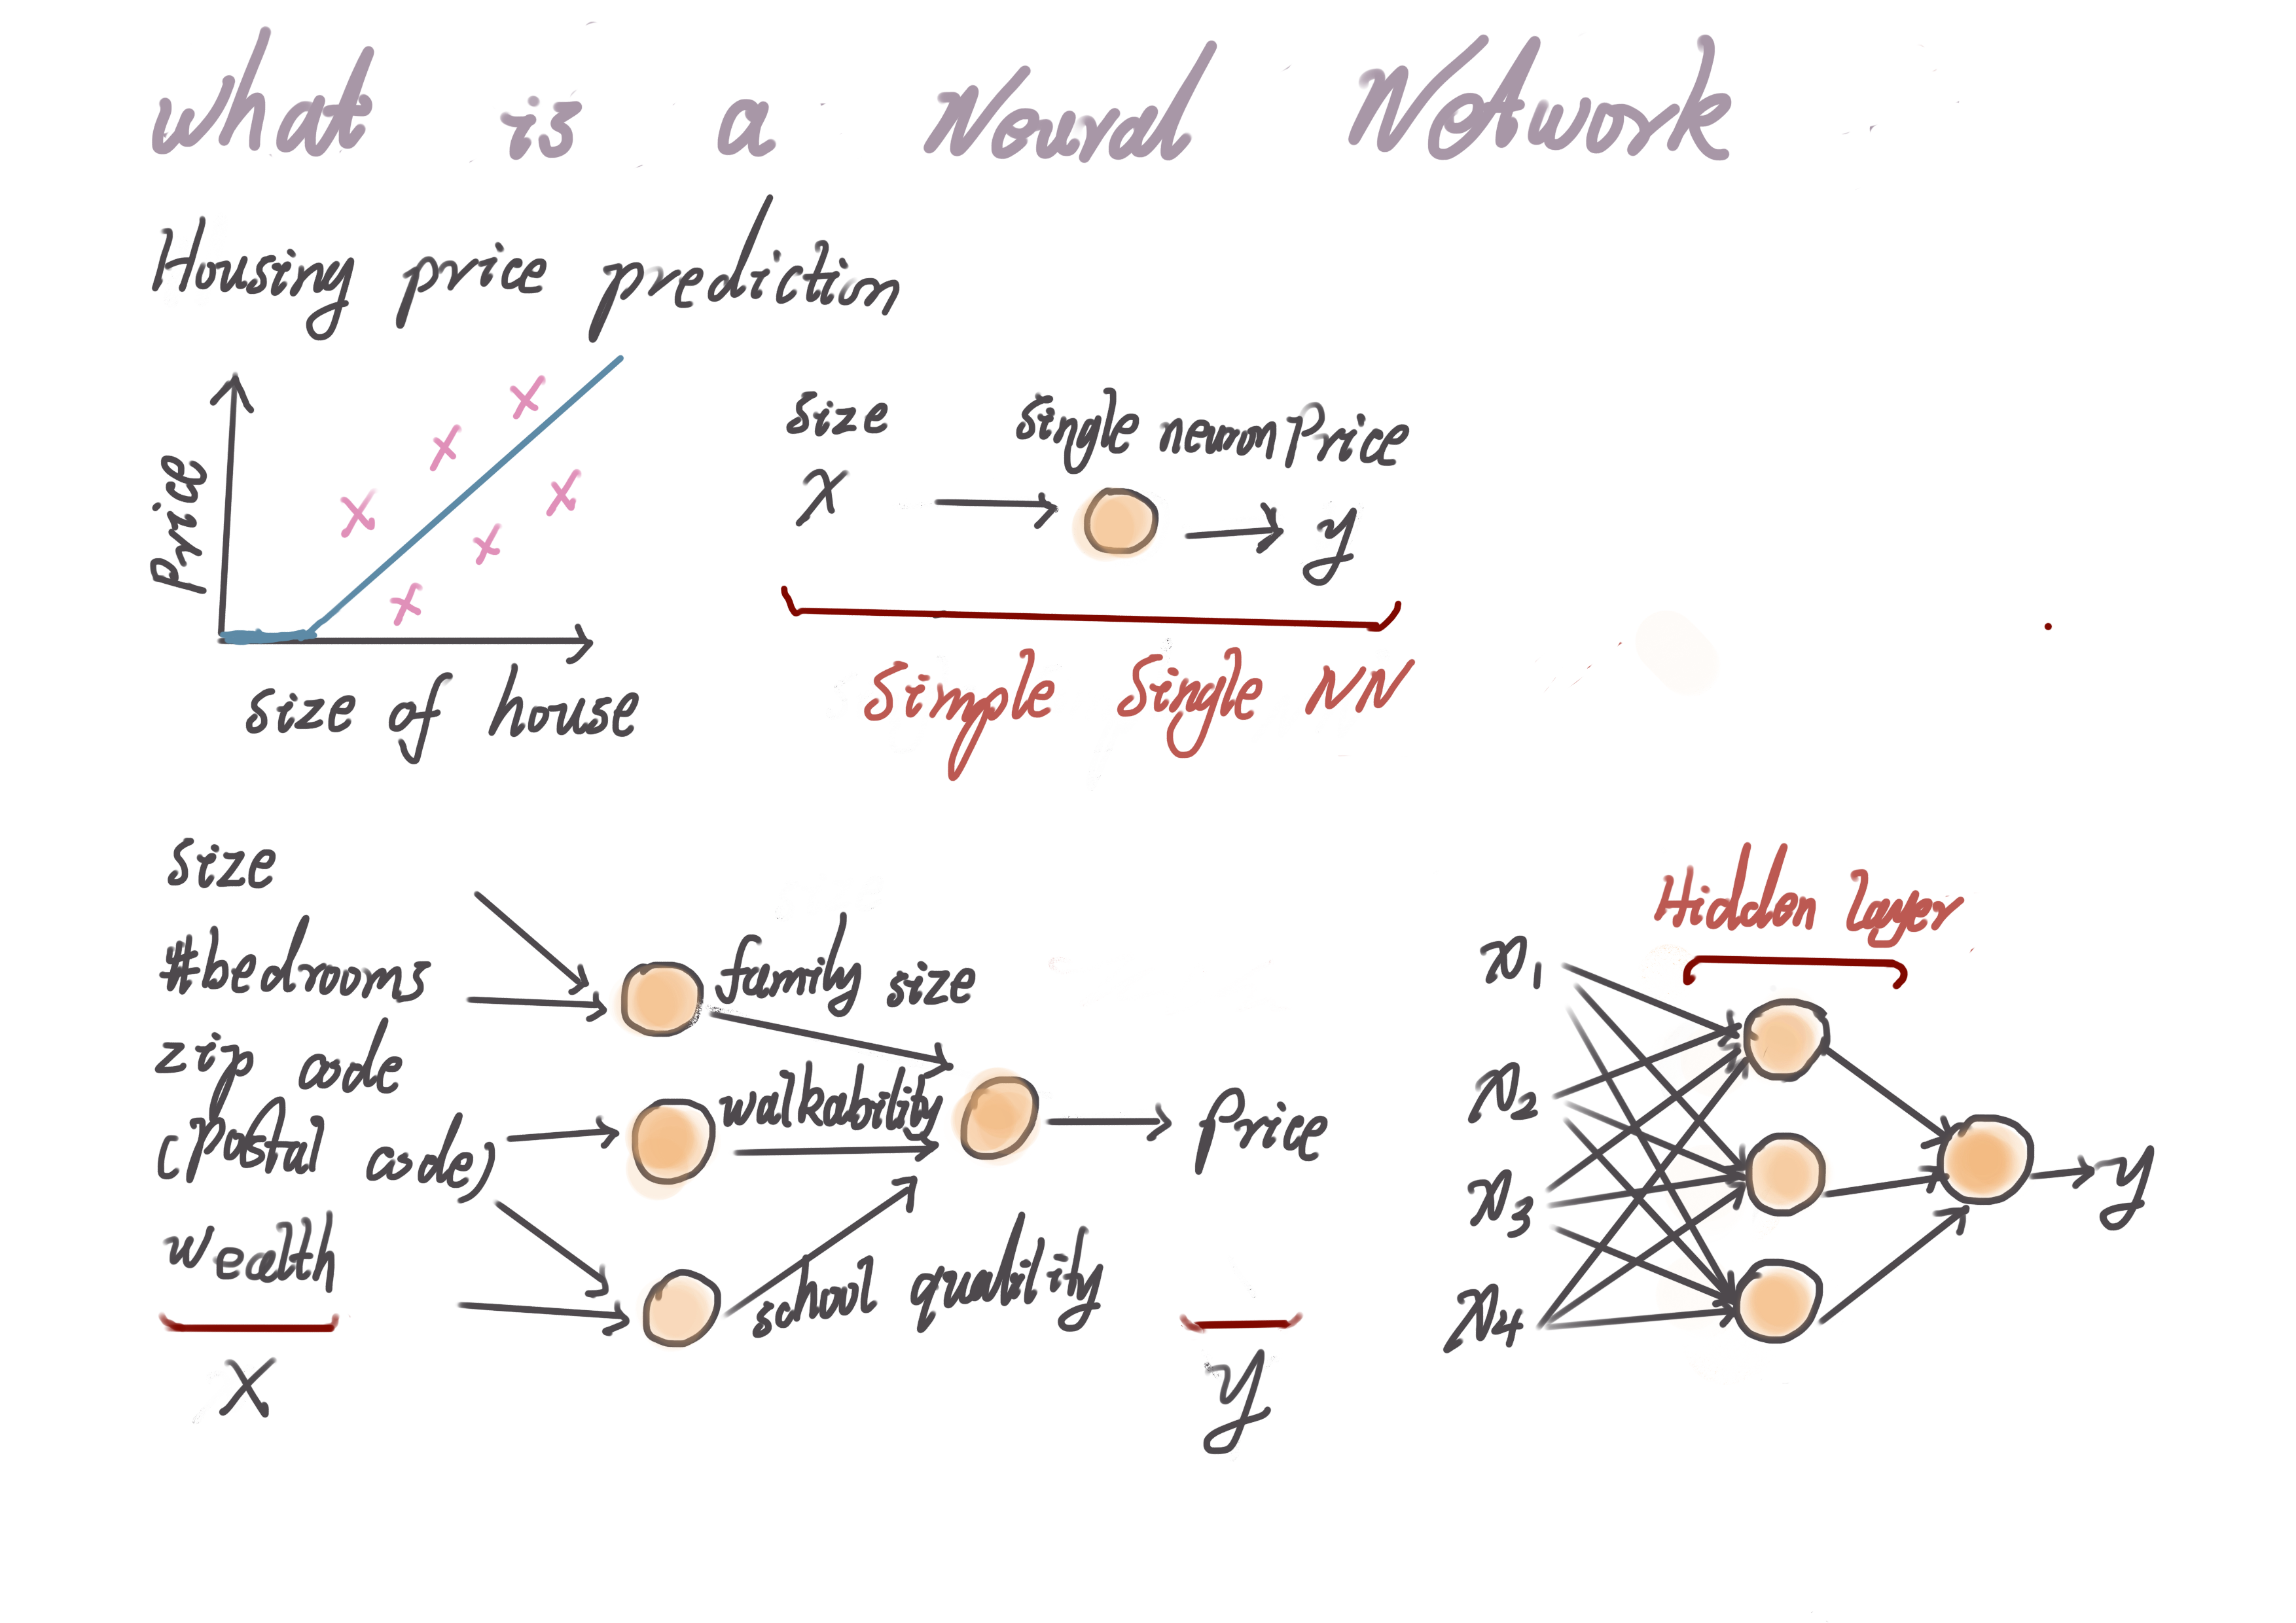 what is a Neural Network
Housing price prediction
Price
size of house
size
single neuron
Price
X
y
Simple Single NN
size
#bedrooms
zip code
(Postal code)
wealth
X
family size
walkability
school quality
Price
y
Hidden layer
x1
x2
x3
x4
y